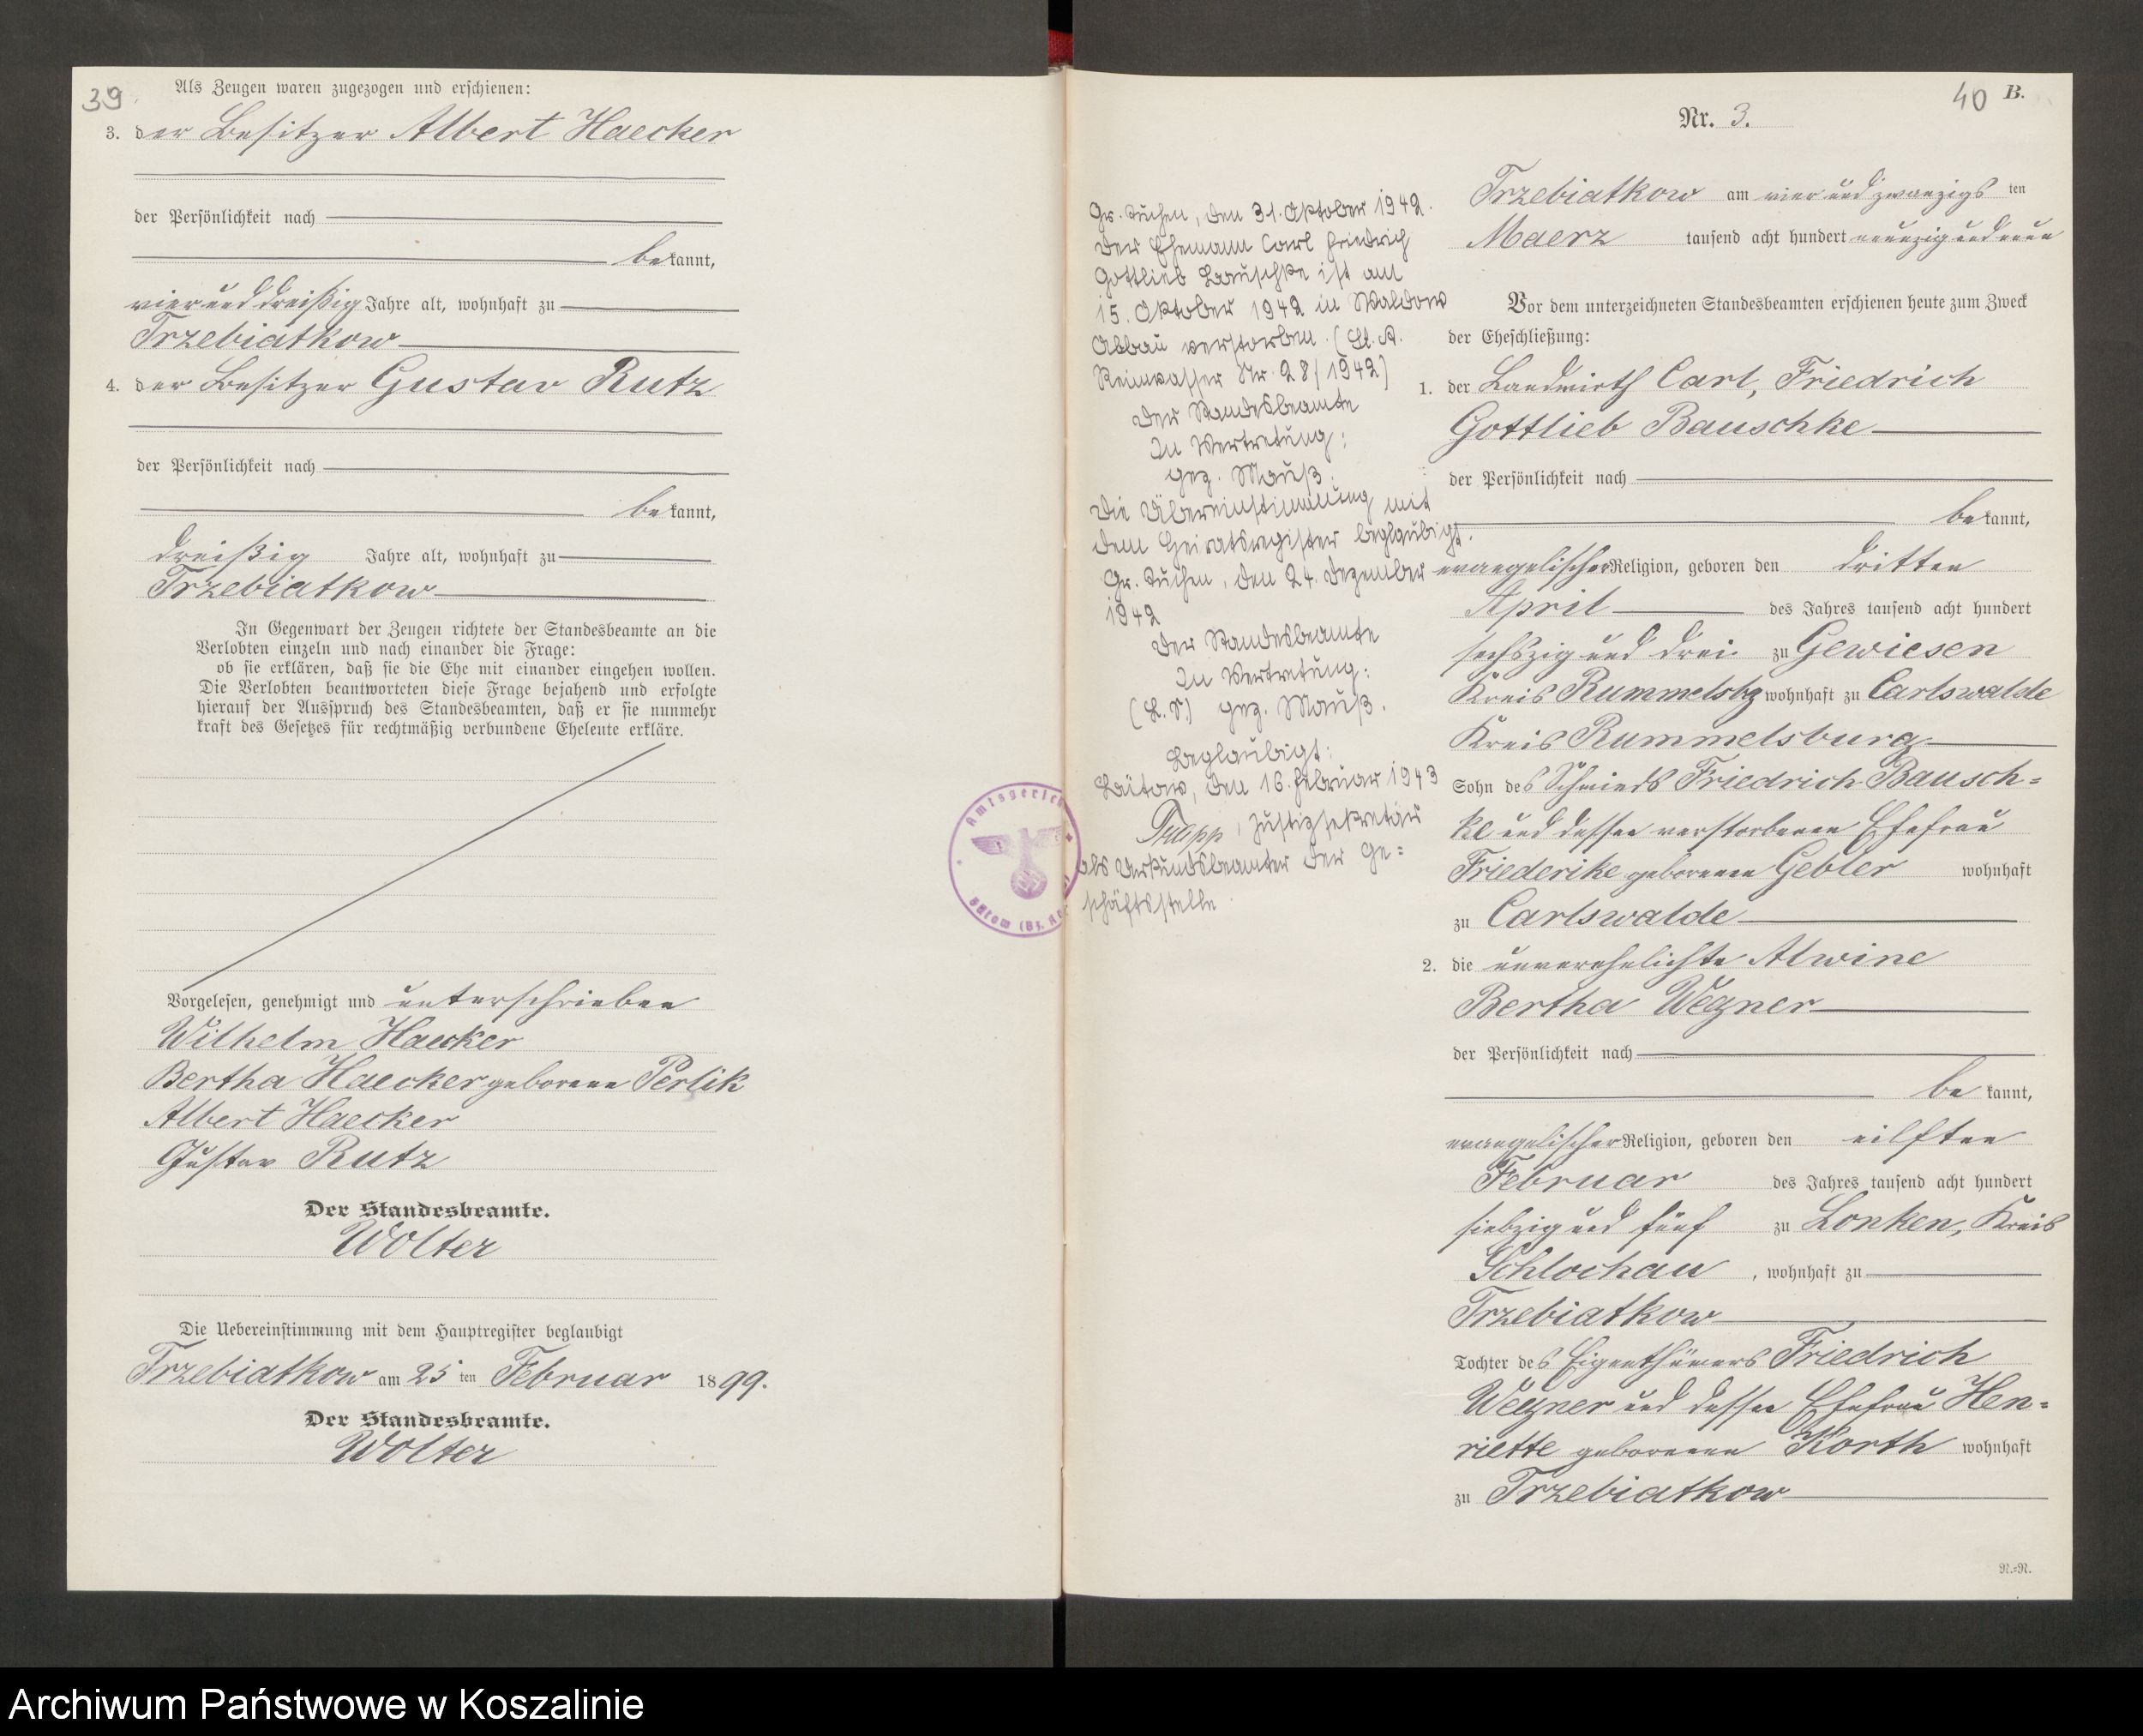 39
Als Zeugen waren zugezogen und erschienen:
3. der Besitzer Albert Haecker
der Persönlichkeit nach
bekannt,
vier und dreißig Jahre alt, wohnhaft zu
Trzebiatkow
4. der Besitzer Gustav Rutz
der Persönlichkeit nach
bekannt,
dreißig Jahre alt, wohnhaft zu
Trzebiatkow
In Gegenwart der Zeugen richtete der Standesbeamte an die
Verlobten einzeln und nach einander die Frage:
ob sie erklären, daß sie die Ehe mit einander eingehen wollen.
Die Verlobten beantworteten diese Frage bejahend und erfolgte
hierauf der Ausspruch des Standesbeamten, daß er sie nunmehr
kraft des Gesetzes für rechtmäßig verbundene Eheleute erkläre.
Vorgelesen, genehmigt und unterschrieben
Wilhelm Haecker
Bertha Haecker geborene Perlik
Albert Haecker
Gustav Rutz
Der Standesbeamte.
Wolter
Die Uebereinstimmung mit dem Hauptregister beglaubigt
Trzebiatkow am 25 ten Februar 1899.
Der Standesbeamte.
Wolter
Amtsgericht
Bütow (Bz.
Gr. Tuchen, den 31. Oktober 1942.
Der Ehemann Carl Friedrich
Gottlieb Bauschke ist am
15. Oktober 1942 in Waldow
Abbau verstorben. (St. A.
Reinwasser Nr. 28/1942)
Der Standesbeamte
In Vertretung:
gez. Mauß.
Die Übereinstimmung mit
dem Heiratsregister beglaubigt.
Gr. Tuchen, den 24. Dezember
1942
Der Standesbeamte
In Vertretung:
(L. S.) gez. Mauß.
Beglaubigt:
Bütow, den 16. Februar 1943
Trapp, Justizsekretär
als Urkundsbeamter der Ge=
schäftsstelle.
40 B.
Nr. 3.
Trzebiatkow am vier und zwanzigs ten
Maerz tausend acht hundert neunzig und neun
Vor dem unterzeichneten Standesbeamten erschienen heute zum Zweck
der Eheschließung:
1. der Landwirth Carl, Friedrich
Gottlieb Bauschke
der Persönlichkeit nach
bekannt,
evangelischer Religion, geboren den dritten
April des Jahres tausend acht hundert
sechszig und drei zu Gewiesen
Kreis Rummelsbg wohnhaft zu Carlswalde
Kreis Rummelsburg
Sohn des Schmieds Friedrich Bausch=
ke und dessen verstorbenen Ehefrau
Friederike geborenen Gebler wohnhaft
zu Carlswalde
2. die unverehelichte Alwine
Bertha Wegner
der Persönlichkeit nach
be kannt,
evangelischer Religion, geboren den eilften
Februar des Jahres tausend acht hundert
siebzig und fünf zu Lonken, Kreis
Schlochau, wohnhaft zu
Trzebiatkow
Tochter des Eigenthümers Friedrich
Wegner und dessen Ehefrau Hen=
riette geborenen Korth wohnhaft
zu Trzebiatkow
N.=N.
Archiwum Państwowe w Koszalinie